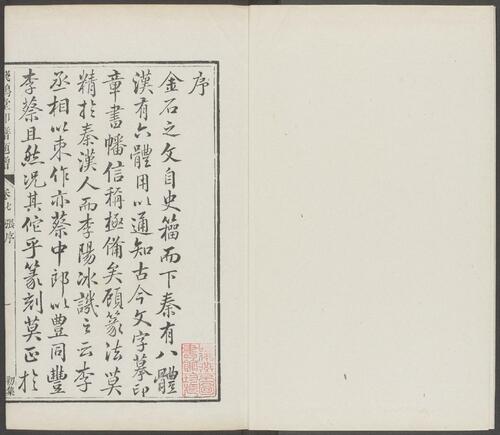 序
金石之文自史籀而下秦有八體
漢有六體用以通知古今文字摹印
章書幡信稱極備矣顧篆法莫
精於秦漢人而李陽冰譏之云李
丞相以束作亦蔡中郎以豊同豐
李蔡且然况其佗乎篆刻莫正於
飛鴻堂印譜
卷七 張序
一
初集